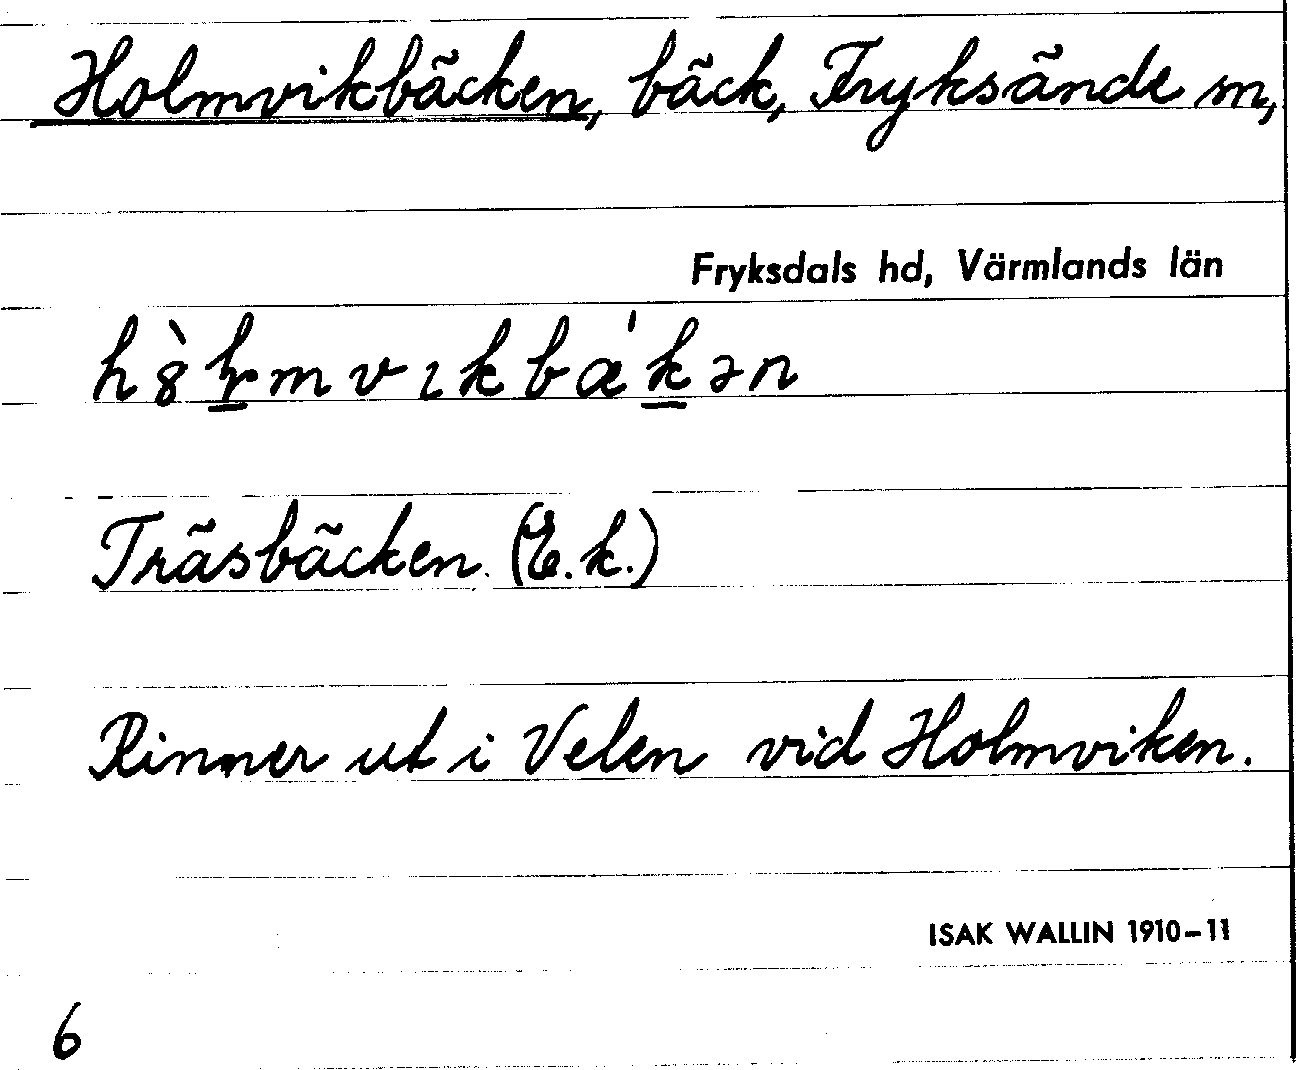 Holmvikbäcken, bäck, Fryksände sn,
Fryksdals hd, Värmlands län
Träsbäcken. (E.k.)
Rinner ut i Velen vid Holmviken.
ISAK WALLIN 1910–11
6